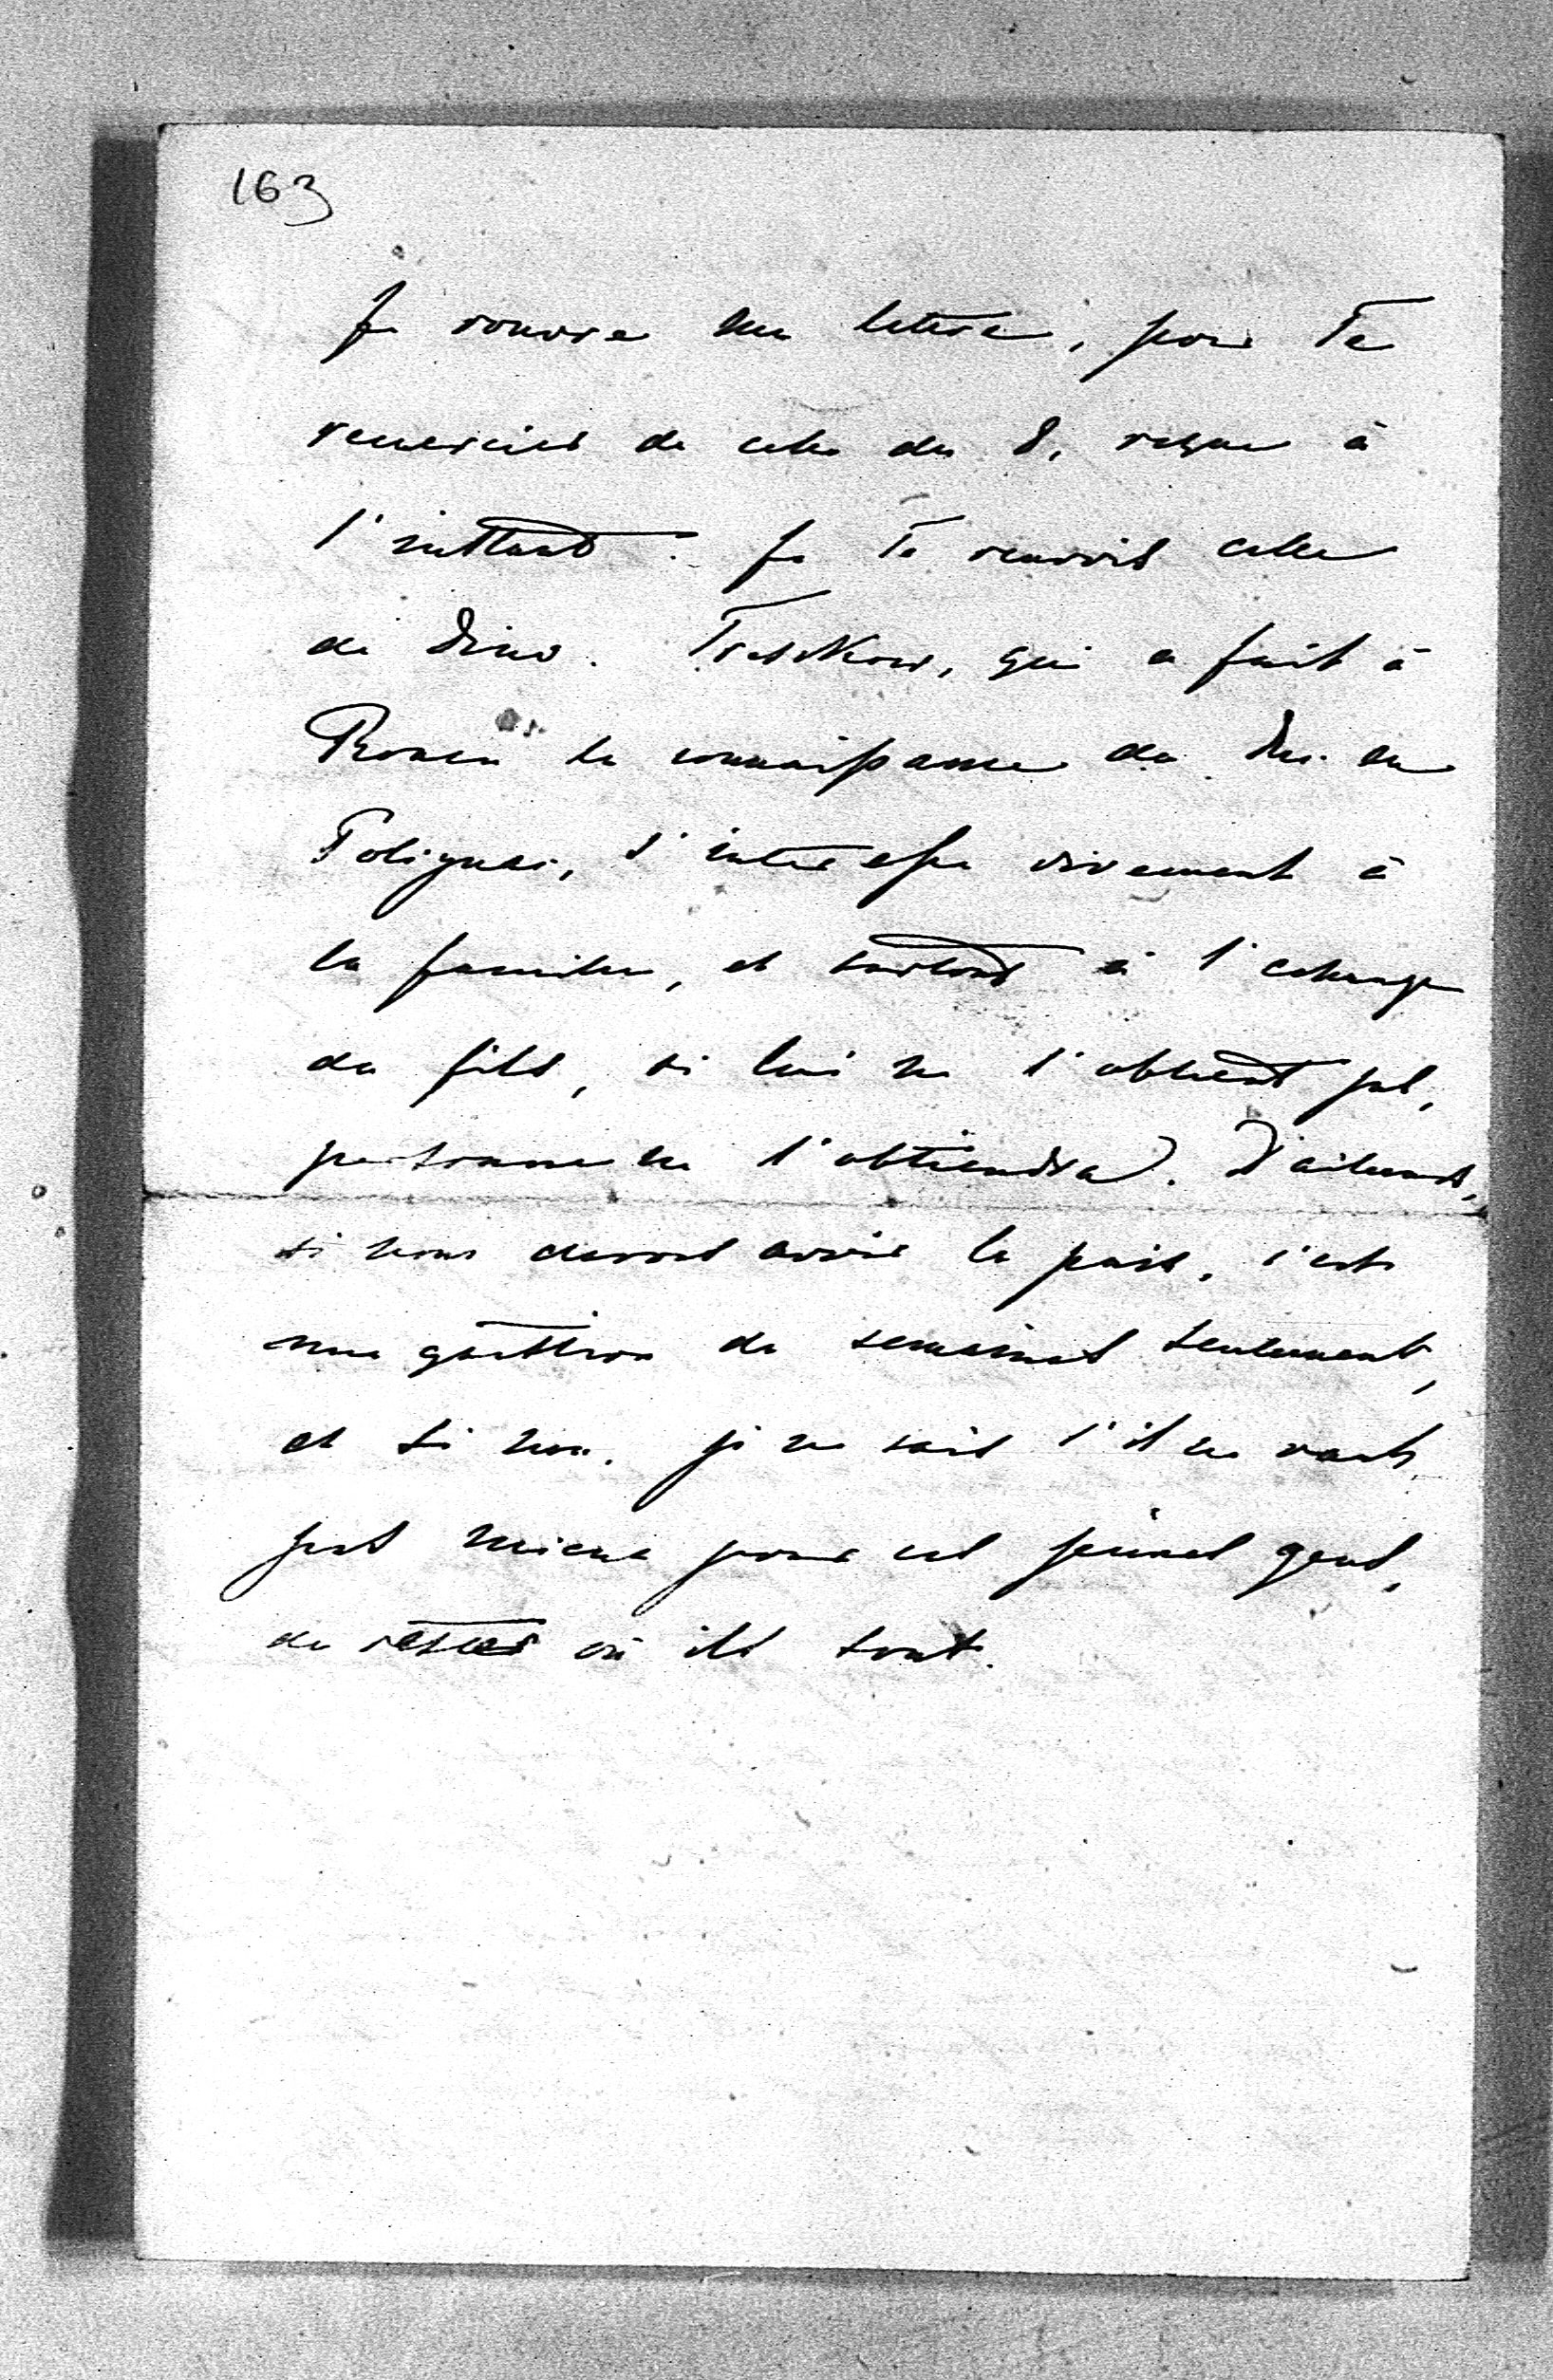 163
Je rouvre ma lettre, pour Te
remercier de celle du 8, reçue à
l'instant. Je Te renvois celle
de Dino. Treskow, qui a fait à
Rouen la connaissance du Duc de
Polignac, s'intéresse vivement à
la famille, et surtout à l'echange
du fils, si lui ne l'obtient pas,
personne ne l'obtiendra. D'ailleurs,
si nous devons avoir la paix, c'est
une question de semaines seulement,
et si non, je ne sais s'il ne vaut
pas mieux pour ces jeunes gens,
de rester où ils sont.